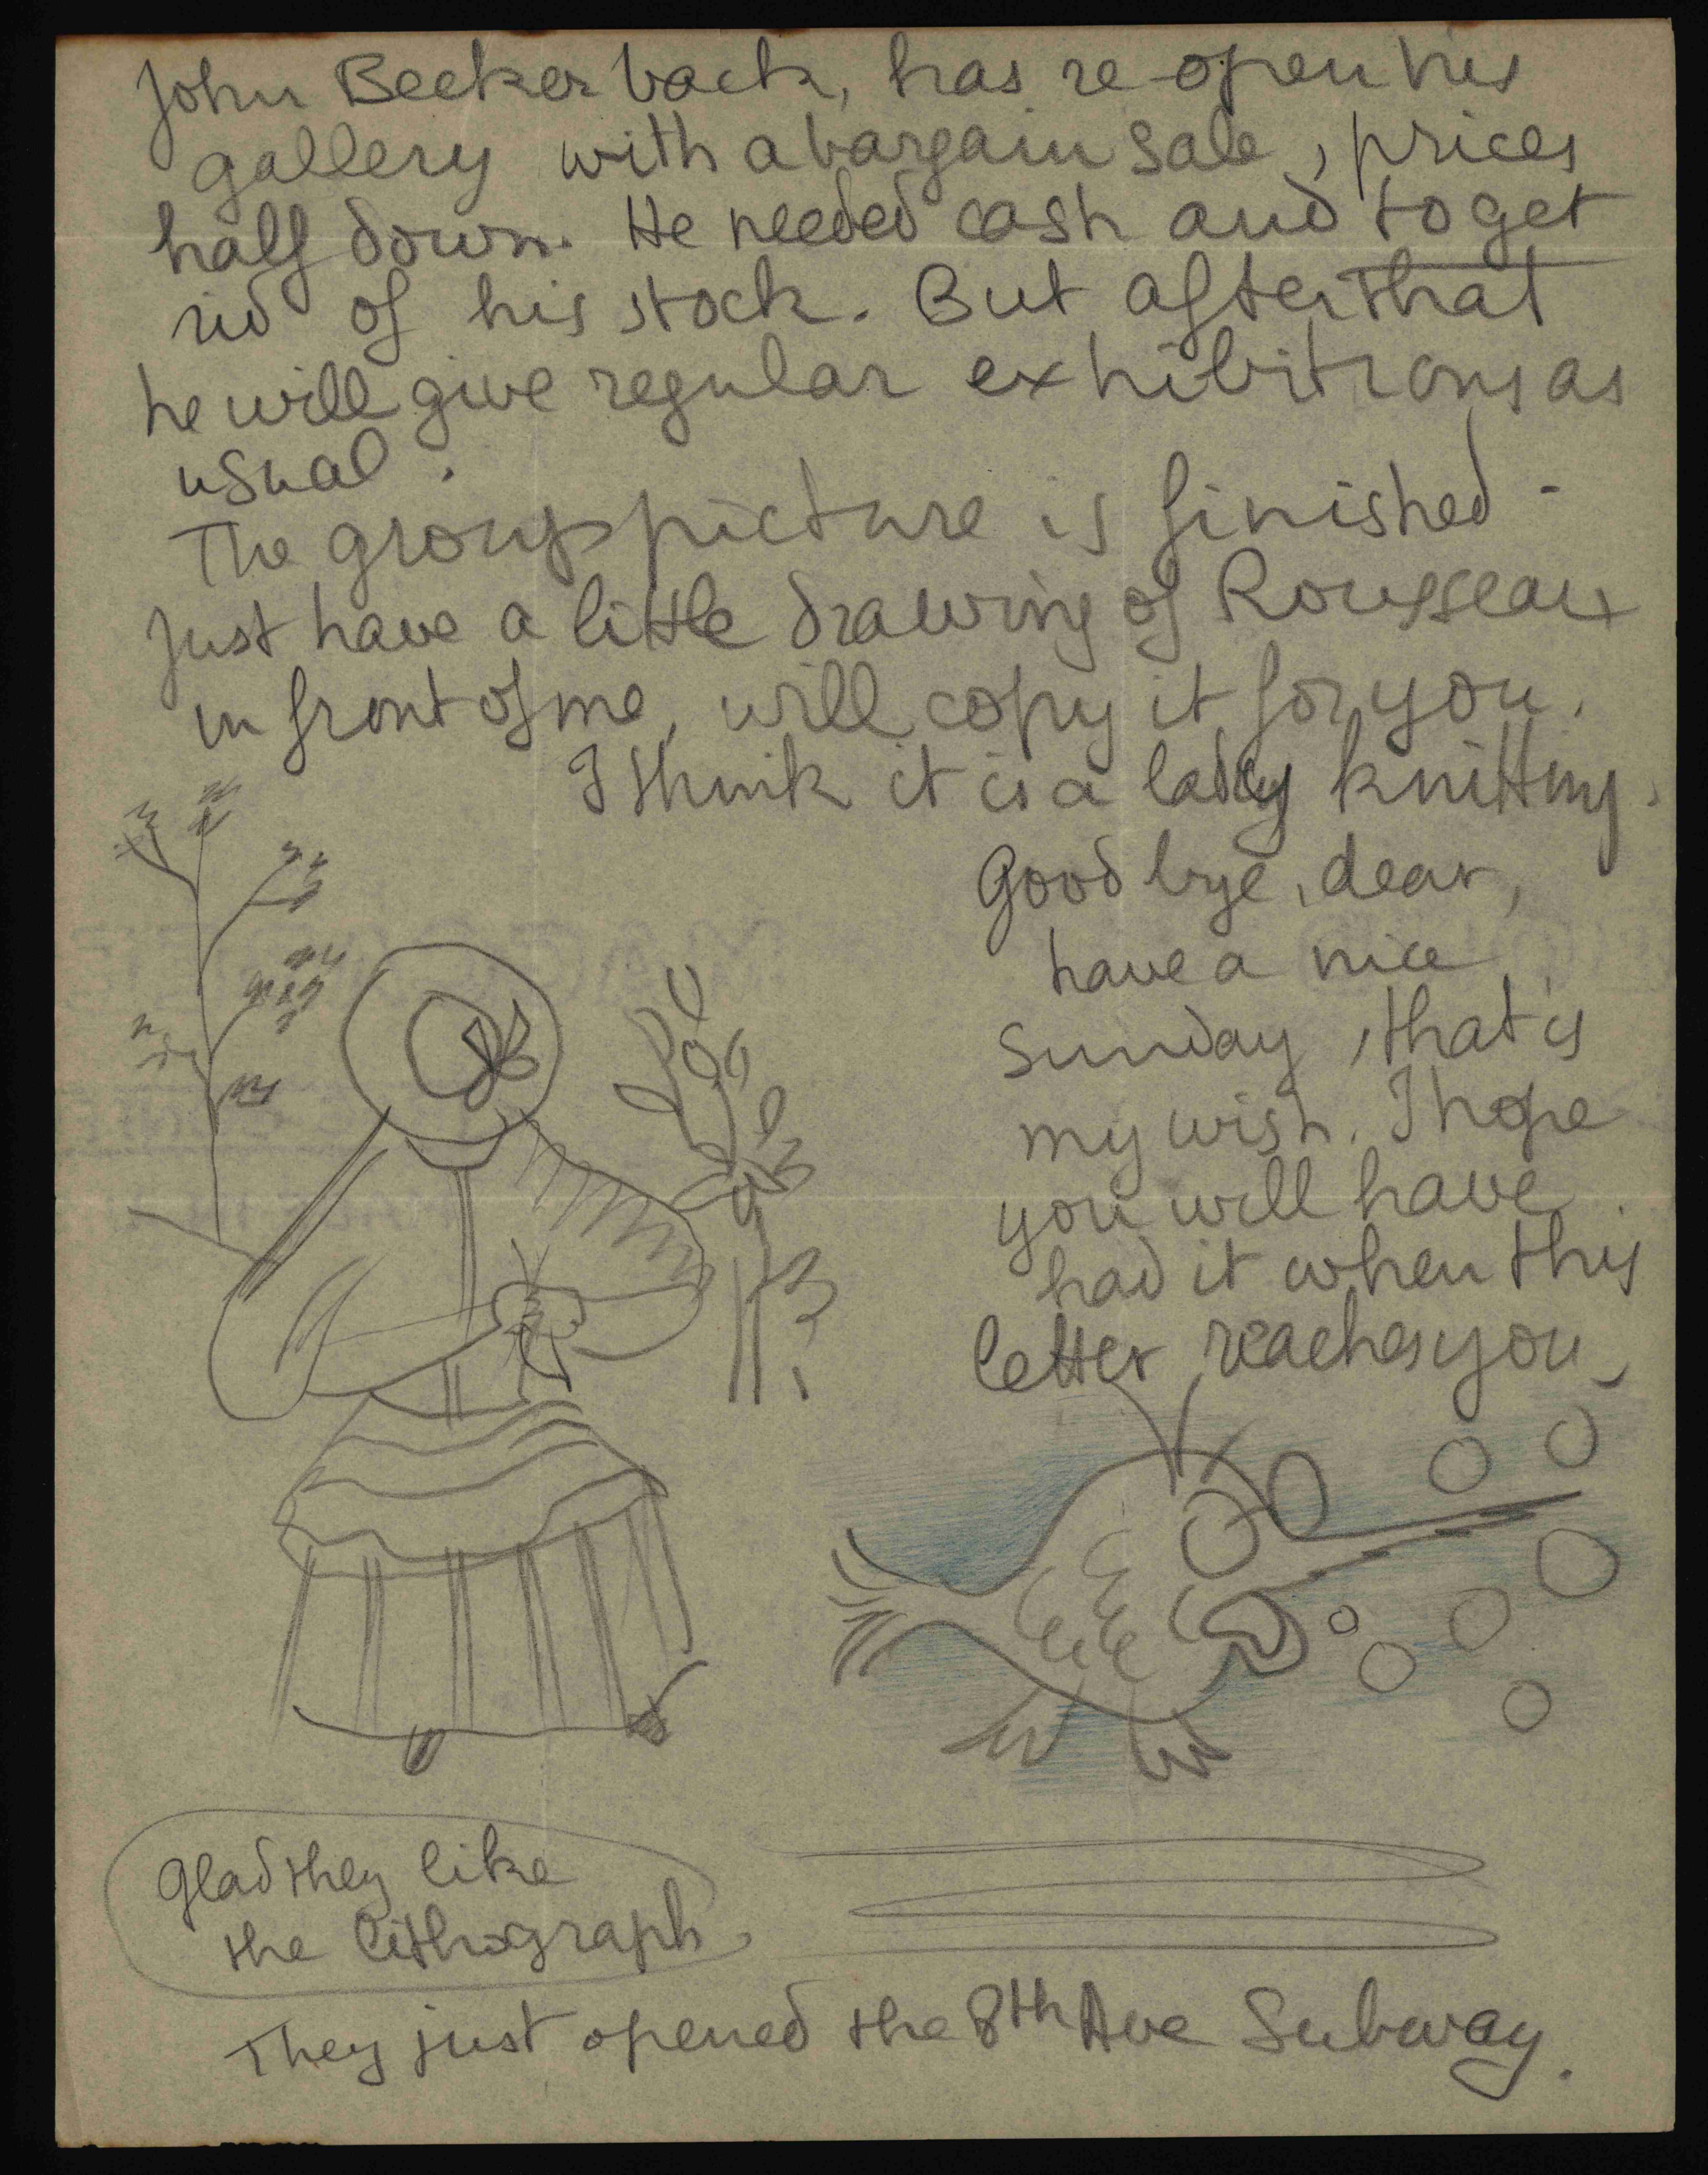 John Becker back, has re-open his
gallery with a bargain sale, prices
half down. He needed cash and to get
rid of his stock. But after that
he will give regular exhibitions as
usual.
The group picture is finished -
Just have a little drawing of Rousseau
in front of me, will copy it for you.
I think it is a lady knitting.
Good bye, dear,
have a nice
Sunday, that is
my wish. I hope
you will have
had it when this
letter reaches you
Glad they like
the lithograph
They just opened the 8th Ave Subway.